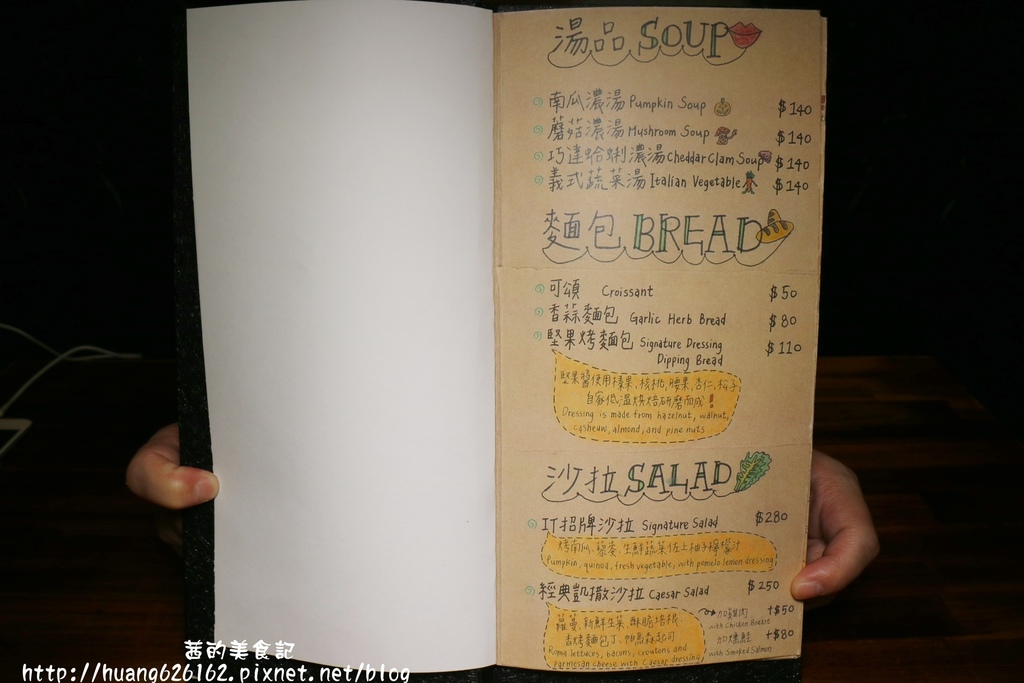 湯品 SOUP
南瓜濃湯 Pumpkin Soup $140
蘑菇濃湯 Mushroom Soup $140
巧達蛤蜊濃湯 Cheddar Clam Soup $140
義式蔬菜湯 Italian Vegetable $140
麵包 BREAD
可頌 Croissant $50
香蒜麵包 Garlic Herb Bread $80
堅果烤麵包 Signature Dressing $110
Dipping Bread
堅果醬使用榛果、核桃、腰果、杏仁、松子
自家低溫烘焙研磨而成!
Dressing is made from hazelnut, walnut,
casheuw, almond, and pine nuts
沙拉 SALAD
IT招牌沙拉 Signature Salad $280
烤南瓜、藜麥、生鮮蔬菜佐上柚子檸檬汁
Pumpkin, quinoa, fresh vegetable, with pomelo lemon dressing
經典凱撒沙拉 Caesar Salad $250
加雞肉 +$50
with Chicken Breast
加燻鮭 +$80
with Smoked Salmon
蘿蔓、新鮮生菜、酥脆培根、
香烤麵包丁、帕馬森起司
Roma lettuces, bacons, croutons and
parmesan cheese with Caesar dressing
茜的美食記
http://huang626162.pixnet.net/blog